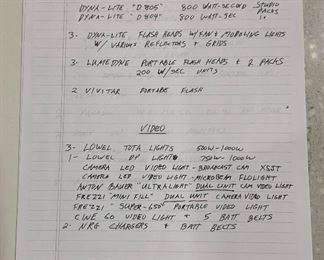 DYNA-LITE "D805" 800 WATT-SECOND STUDIO PACKS
DYNA-LITE "D804" 800 WATT-SEC
3- DYNA-LITE FLASH HEADS W/FAN & MODELING LIGHTS
W/ VARIOUS REFLECTORS & GRIDS.
3- LUMEDYNE PORTABLE FLASH HEADS & 2 PACKS
200 W/SEC UNITS
2 VIVITAR PORTABLE FLASH
VIDEO
3- LOWEL TOTA LIGHTS 500W-1000W
1- LOWEL DP LIGHT 750W-1000W
CAMERA LED VIDEO LIGHT-BROADCAST CAM X55T
CAMERA LED VIDEO LIGHT-MICROBEAM FLOLIGHT
ANTON BAUER "ULTRALIGHT" DUAL UNIT CAM VIDEO LIGHT
FREZZI "MINI FILL" DUAL UNIT CAMERA VIDEO LIGHT
FREZZI "SUPER-650" PORTABLE VIDEO LIGHT
CINE 60 VIDEO LIGHT & 5 BATT BELTS
2- NRG CHARGERS & BATT BELTS